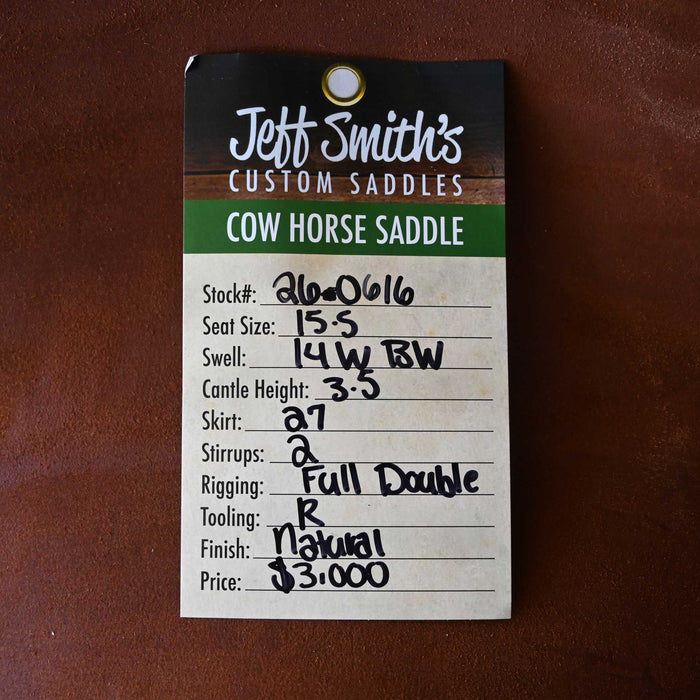 Jeff Smith's
CUSTOM SADDLES
COW HORSE SADDLE
Stock#: 26-0616
Seat Size: 15.5
Swell: 14 W BW
Cantle Height: 3.5
Skirt: 27
Stirrups: 2
Rigging: Full Double
Tooling: R
Finish: Natural
Price: $3.000